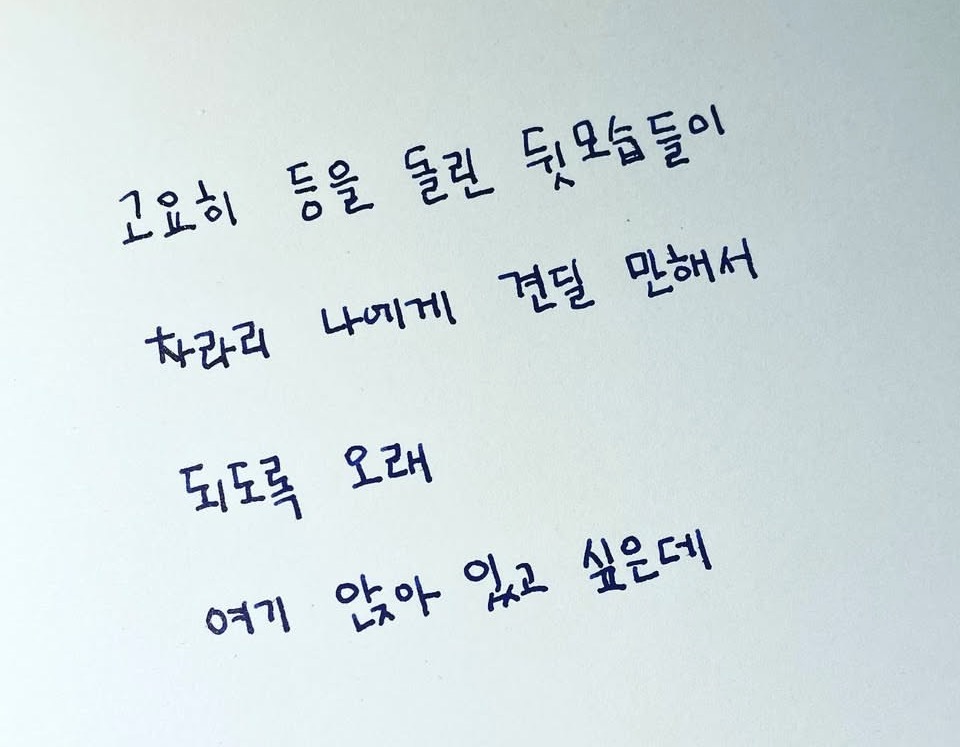 고요히 등을 돌린 뒷모습들이
차라리 나에게 견딜 만해서
되도록 오래
여기 앉아 있고 싶은데